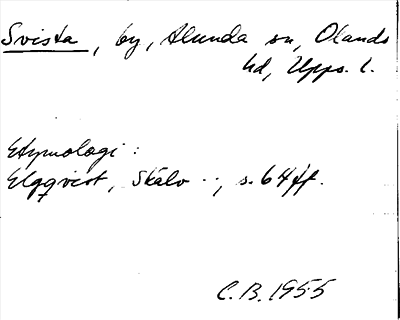 Svista, by, Alunda sn, Olands
hd, Upps. l.
Etymologi:
Elgqvist, Skälv .., s. 64 ff.
C. B. 1955